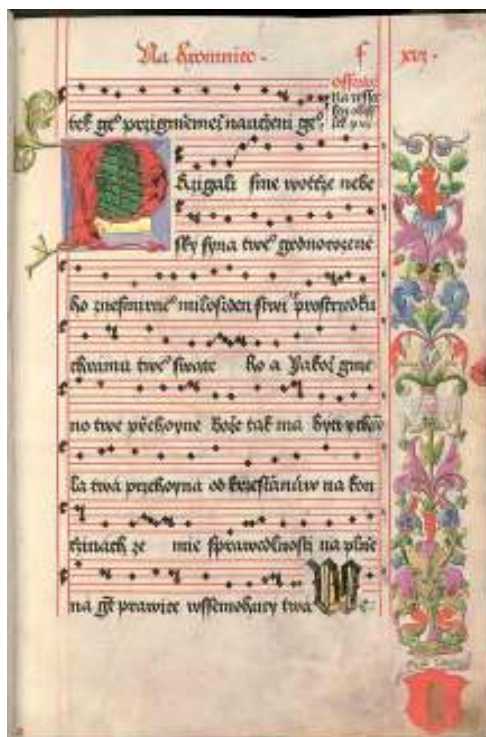 Na hromnice · f xvi ·
tek geº przigmiemež naučeni geº
Przigali sme wotcže nebe
sky syna tweº gednorozene
ho znesmirneº milosrdenstwi prostrzedku
chramu tweº swate ho a Jakož gme
no twe přehoyne Bože tak ma byti
la twá przehoyna od krzestanůw na kon
czinach ze mie sprawedlnosti na plně
na gt prawice wssemohucy twa We